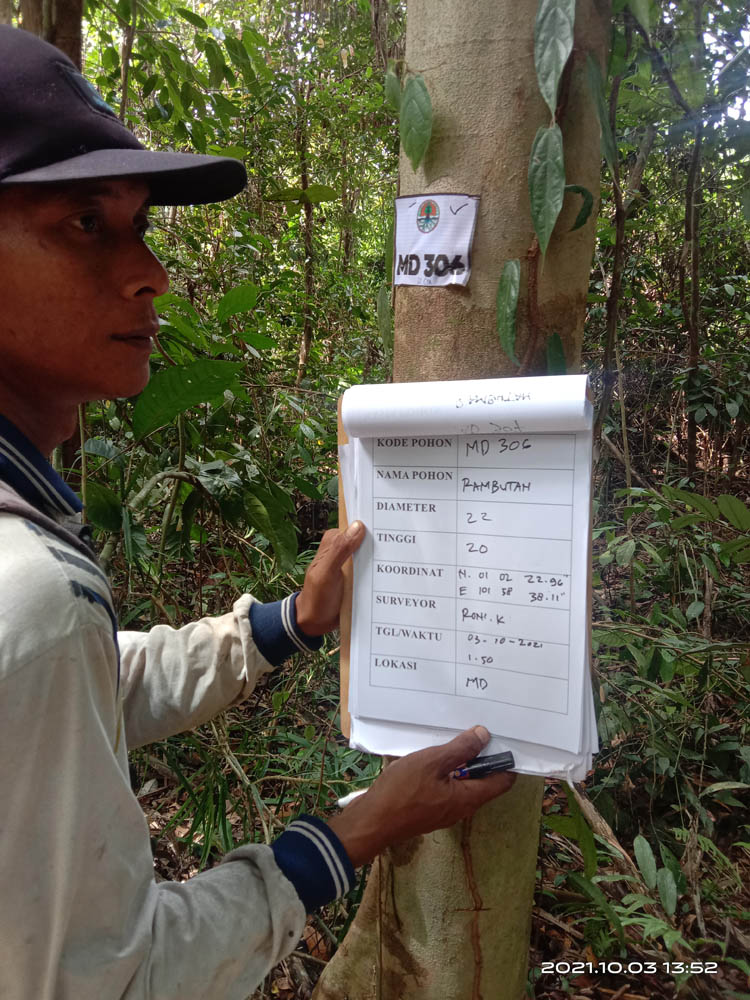 MD 306
KODE POHON MD 306
NAMA POHON RAMBUTAN
DIAMETER 22
TINGGI 20
KOORDINAT N. 01 02 22.96"
E 101 58 38.11"
SURVEYOR RONI.K
TGL/WAKTU 03-10-2021
1.50
LOKASI MD
2021.10.03 13:52